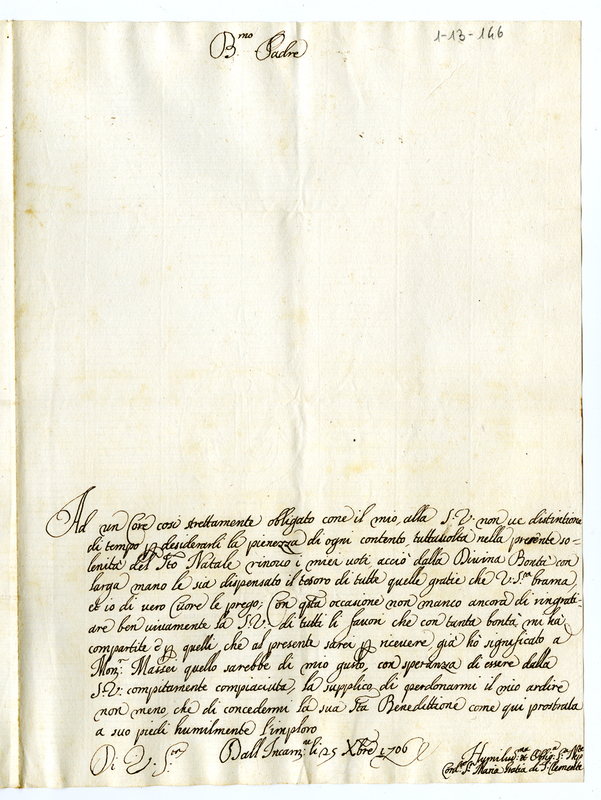 1-13-146
B.mo Padre
Ad un Core così strettamente obligato come il mio, alla S.V. non ve distintione
di tempo p desiderarli la pienezza di ogni contento tuttavolta nella presente so-
lenità del Sto Natale rinovo i miei voti acciò dalla Divina Bontà con
larga mano le sia dispensato il tesoro di tutte quelle gratie che V.S.ra brama,
et io di vero Cuore le prego; Con qsta occasione non manco ancora di ringrati-
are ben vivamente la S.V. di tutti li favori che con tanta bontà mi hà
compartite e p quelli, che al presente sarei p ricevere, già hò significato a
Mon.r Massei quello sarebbe di mio gusto, con speranza di essere dalla
S.V. compitamente compiaciuta, la supplico di perdonarmi il mio ardire
non meno, che di concedermi la sua Sta Beneditione come qui prostrata
a suo piedi humilmente l'imploro
Di V. S.ra Dall'Incarn.ne li 25 Xbre 1706
Humiliss.ma et Obblig.a S.a
Sr. Maria Gratia di S. Clemente